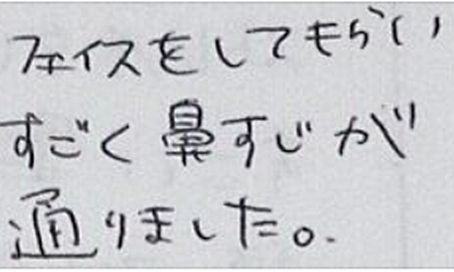 フェイスをしてもらい
すごく鼻すじが
通りました。